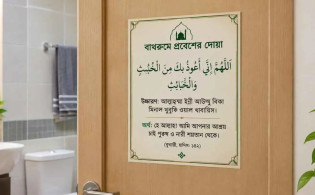 বাথরুমে প্রবেশের দোয়া
اَللَّهُمَّ إِنِّي أَعُوذُ بِكَ مِنَ الْخُبْثِ
وَالْخَبَائِثِ
উচ্চারণ: আল্লাহুম্মা ইন্নী আউযু বিকা
মিনাল খুবুছি ওয়াল খাবায়িস।
অর্থ: হে আল্লাহ! আমি আপনার আশ্রয়
চাই পুরুষ ও নারী শয়তান থেকে।
(বুখারী, হাদিস: ১৪২)